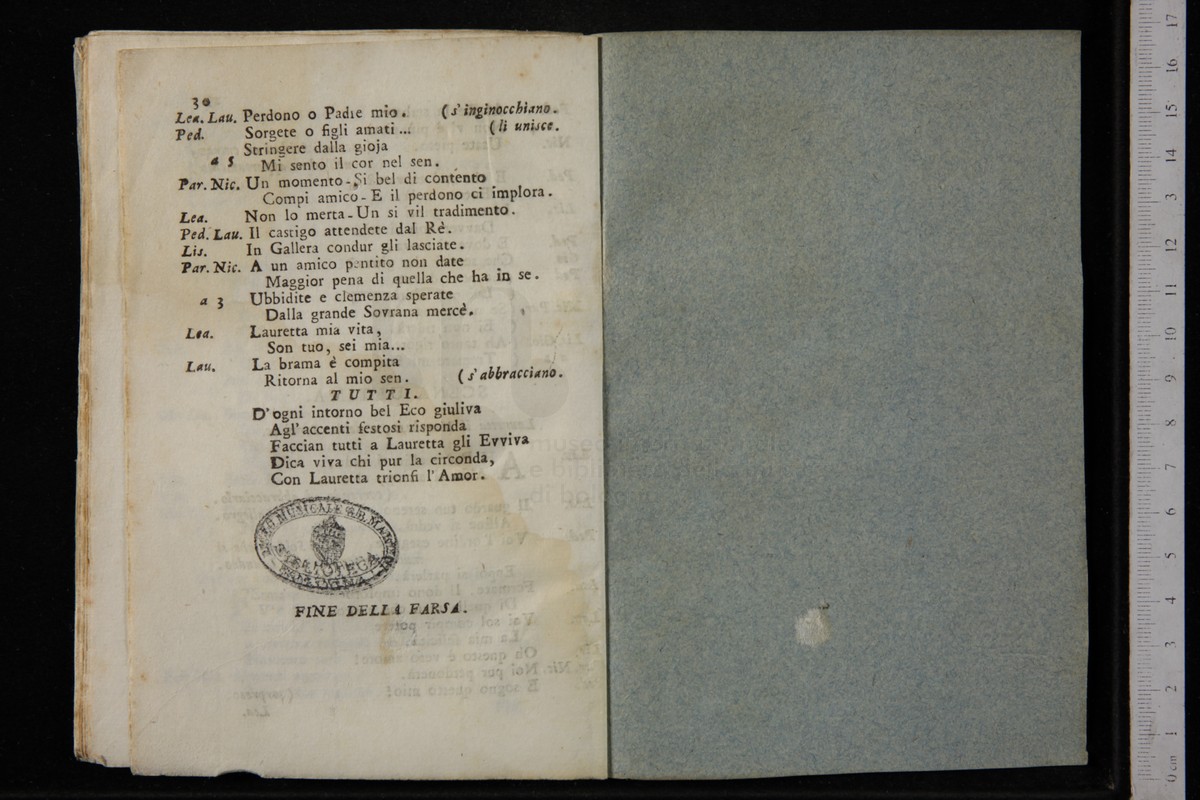 30
Lea. Lau. Perdono o Padre mio. (s'inginocchiano.
Ped. Sorgete o figli amati... (li unisce.
Stringere dalla gioja
a 5 Mi sento il cor nel sen.
Par. Nic. Un momento-Si bel di contento
Compi amico-E il perdono ci implora.
Lea. Non lo merta-Un si vil tradimento.
Ped. Lau. Il castigo attendete dal Rè.
Lis. In Gallera condur gli lasciate.
Par. Nic. A un amico pentito non date
Maggior pena di quella che ha in se.
a 3 Ubbidite e clemenza sperate
Dalla grande Sovrana mercè.
Lea. Lauretta mia vita,
Son tuo, sei mia...
Lau. La brama è compita
Ritorna al mio sen. (s'abbracciano.
TUTTI.
D'ogni intorno bel Eco giuliva
Agl'accenti festosi risponda
Faccian tutti a Lauretta gli Evviva
Dica viva chi pur la circonda,
Con Lauretta trionfi l'Amor.
LICEO MUSICALE
BIBLIOTECA
BOLOGNA
FINE DELLA FARSA.
museo
e biblioteca della musica
di bologna
0 cm 1 2 3 4 5 6 7 8 9 10 11 12 3 14 15 16 17